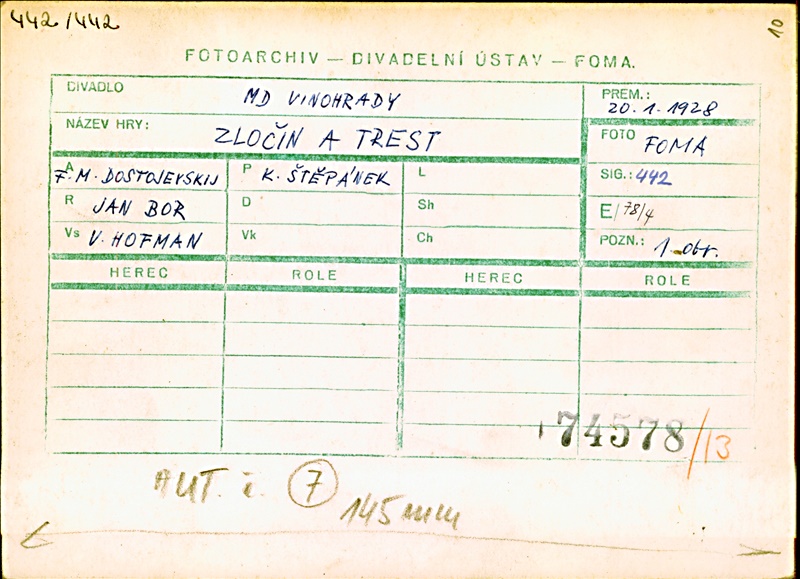 442/442
10
FOTOARCHIV — DIVADELNÍ ÚSTAV — FOMA.
DIVADLO MD VINOHRADY
PREM.: 20.1.1928
NÁZEV HRY: ZLOČIN A TREST
FOTO FOMA
A F. M. DOSTOJEVSKIJ P K. ŠTĚPÁNEK L
SIG.: 442
R JAN BOR D Sh
E/78/4
Vs V. HOFMAN Vk Ch
POZN.: 1. obr.
HEREC ROLE HEREC ROLE
74578/13
AUT. č. 7
145 mm